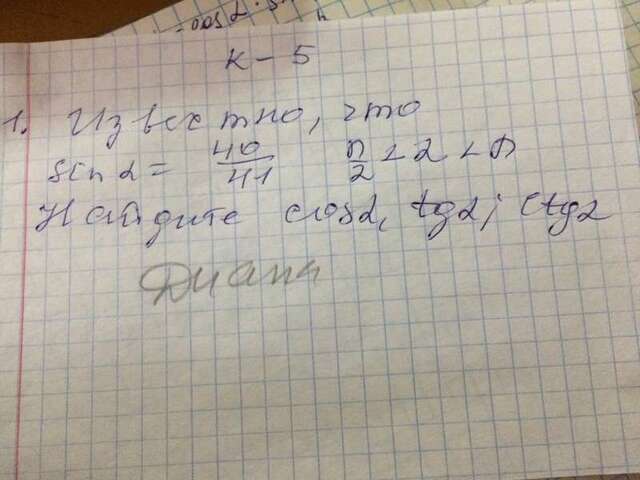 K - 5
1. Известно, что
sin α = 40/41 π/2 < α < π
Найдите cos α, tg α, ctg α
Диана